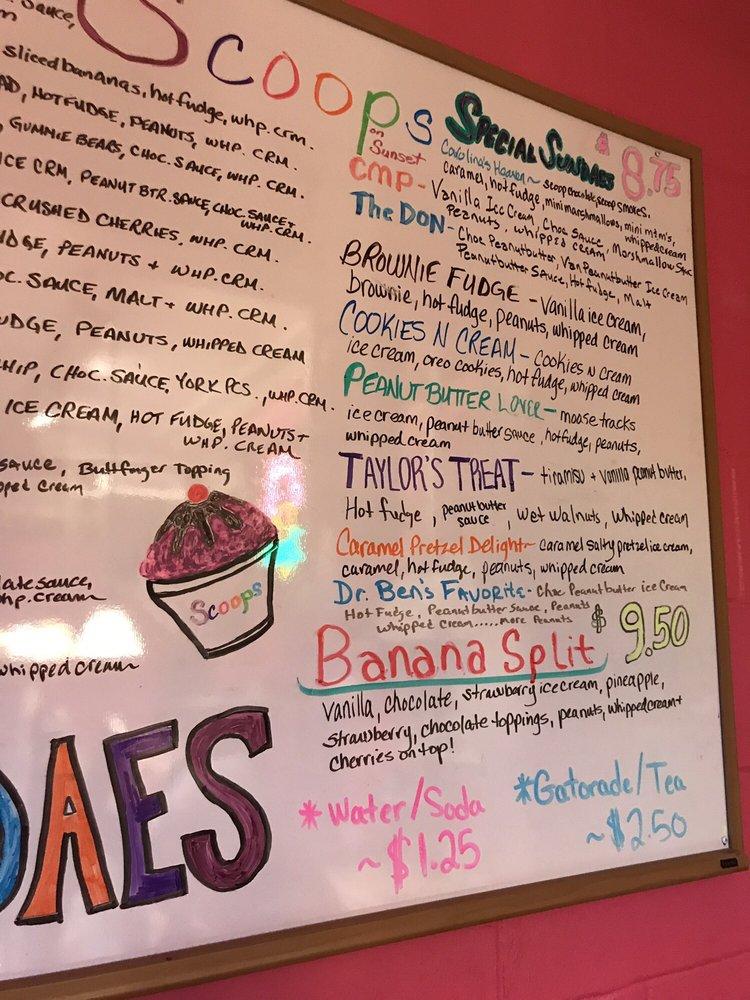 Scoops
on
Sunset
sauce,
sliced bananas, hot fudge, whp. crm.
HOT FUDGE, PEANUTS, WHP. CRM.
GUMMIE BEARS, CHOC. SAUCE, WHP. CRM.
ICE CRM, PEANUT BTR. SAUCE, CHOC. SAUCE +
WHP. CRM.
CRUSHED CHERRIES, WHP. CRM.
PEANUTS + WHP. CRM.
SAUCE, MALT + WHP. CRM.
PEANUTS, WHIPPED CREAM
CHOC. SAUCE, YORK PCS., WHP. CRM.
ICE CREAM, HOT FUDGE, PEANUTS +
WHP. CREAM
sauce, Buttfinger Topping
cream
sauce,
whp. cream
whipped cream
Scoops
SPECIAL SUNDAES $8.75
Carolina's Heaven ~ scoop chocolate, scoop smores,
caramel, hot fudge, mini marshmallows, mini m+m's,
whipped cream
CMP - Vanilla Ice Cream, Choc Sauce, Marshmallow Sce
Peanuts, whipped cream
The DON - Choc Peanutbutter, Van Peanutbutter Ice Cream
Peanutbutter Sauce, Hot fudge, Malt
BROWNIE FUDGE - Vanilla ice cream,
brownie, hot fudge, peanuts, whipped cream
COOKIES N CREAM - Cookies N Cream
ice cream, oreo cookies, hot fudge, whipped cream
PEANUT BUTTER LOVER - moose tracks
ice cream, peanut butter sauce, hot fudge, peanuts,
whipped cream
TAYLOR'S TREAT - tiramisu + vanilla peanut butter,
Hot fudge, peanut butter sauce, wet walnuts, whipped cream
Caramel Pretzel Delight ~ caramel salty pretzel ice cream,
caramel, hot fudge, peanuts, whipped cream
Dr. Ben's Favorite - Choc Peanutbutter ice Cream
Hot Fudge, Peanutbutter Sauce, Peanuts
Whipped Cream.....more Peanuts
$9.50
Banana Split
vanilla, chocolate, strawberry ice cream, pineapple,
strawberry, chocolate toppings, peanuts, whipped cream +
cherries on top!
*Water/Soda
~$1.25
*Gatorade/Tea
~$2.50
DAES